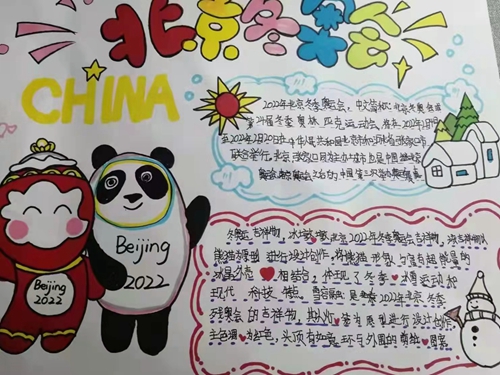 北京冬奥会
CHINA
2022年北京冬季奥运会,中文简称北京冬奥会
第24届冬季奥林匹克运动会,将在2022年2月
至2022年2月20日在中华人民共和国北京市和河北省张家口市
联合举行。北京、张家口同为主办城市,也是中国继北京
奥运会、之后的中国第三次举办的奥运赛事
Beijing
2022
Beijing
2022
冬奥吉祥物,冰墩墩是北京2022年冬季奥运会吉祥物,
熊猫为原型进行设计创作。将熊猫形象与富有超能量的
冰晶外壳相结合,体现了冬季冰雪运动和
现代科技特点。雪容融是2022年北京冬季
残奥会的吉祥物,其以灯笼为原型进行设计创作,
主色调为红色,头顶有如意环与外围的剪纸图案